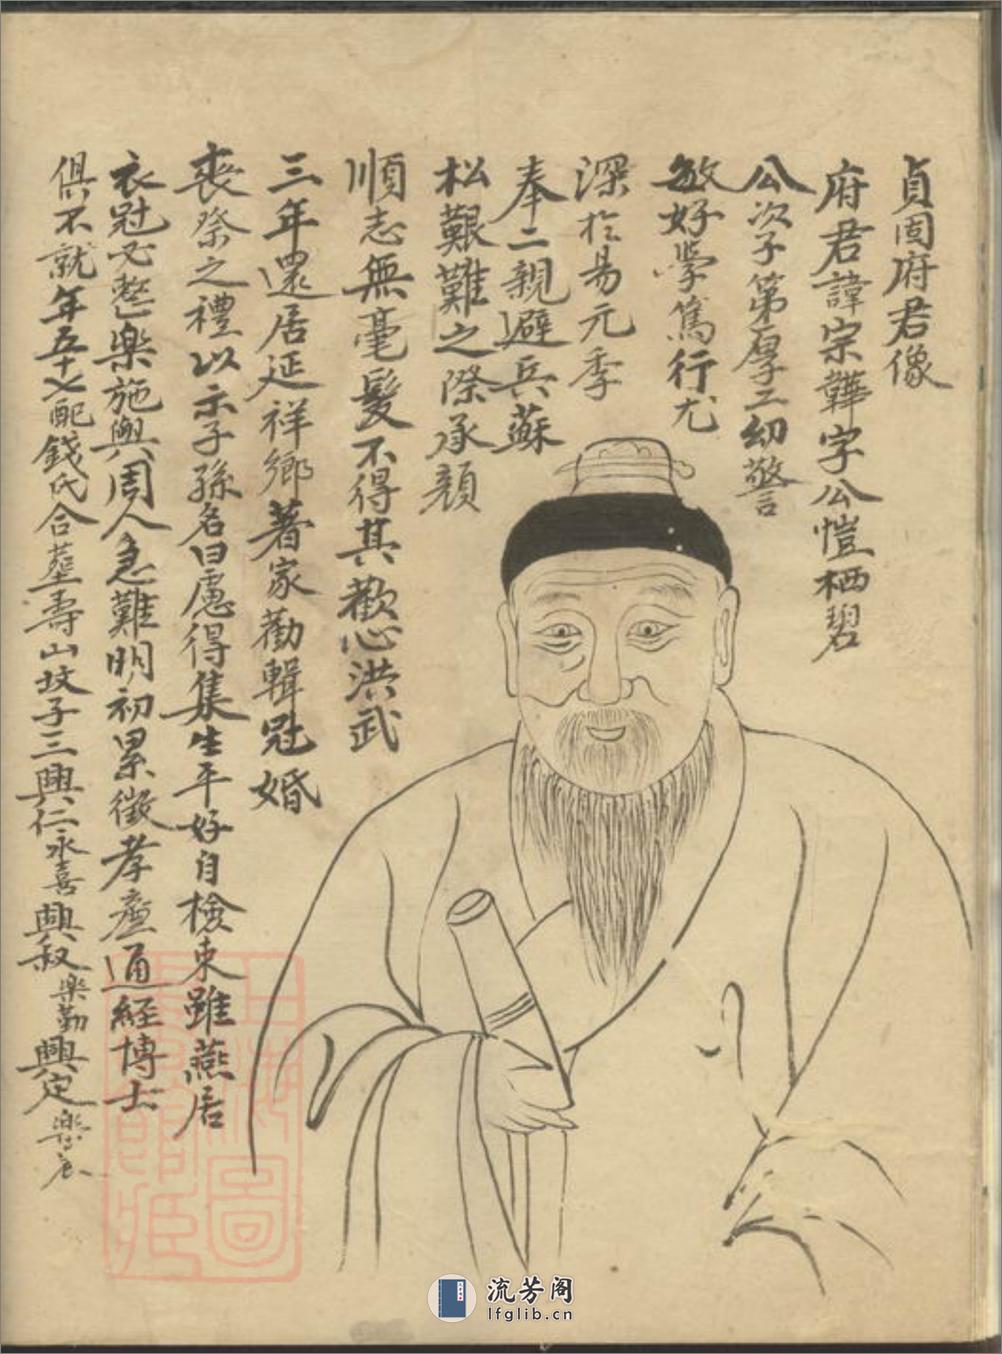 貞固府君像
府君諱宗韡字公愷栖碧
公次子第厚二幼警
敏好學篤行尤
深於易元季
奉二親避兵蘇
松艱難之際承顔
順志無毫髮不得其歡心洪武
三年還居延祥鄉著家勸輯冠婚
喪祭之禮以示子孫名曰慮得集生平好自檢束雖燕居
衣冠必整樂施與周人急難明初累徵孝廉通經博士
俱不就年五十七配錢氏合葬壽山坟子三興仁永喜興叔樂勤興定樂
上海圖書館藏
流芳阁
lfglib.cn